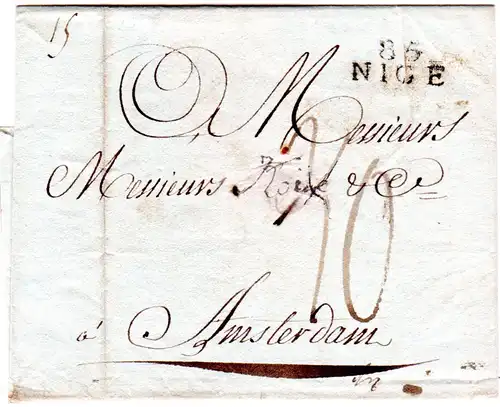 15
85
NICE
A Messieurs
Messieurs & Cie
30
à Amsterdam